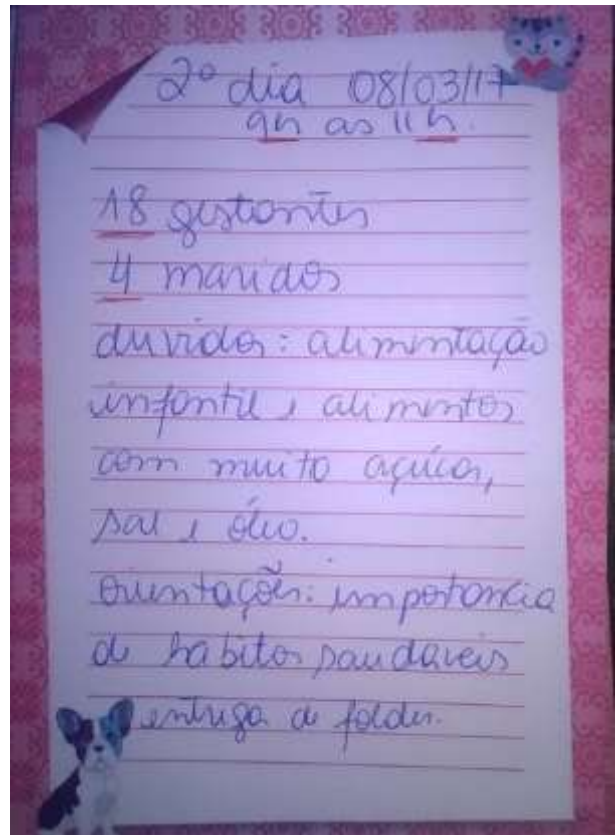 2º dia 08/03/17
9h as 11h.
18 gestantes
4 maridos
duvidas: alimentação
infantil e alimentos
com muito açúcar,
sal e óleo.
orientações: importancia
de habitos saudaveis
entrega de folder.